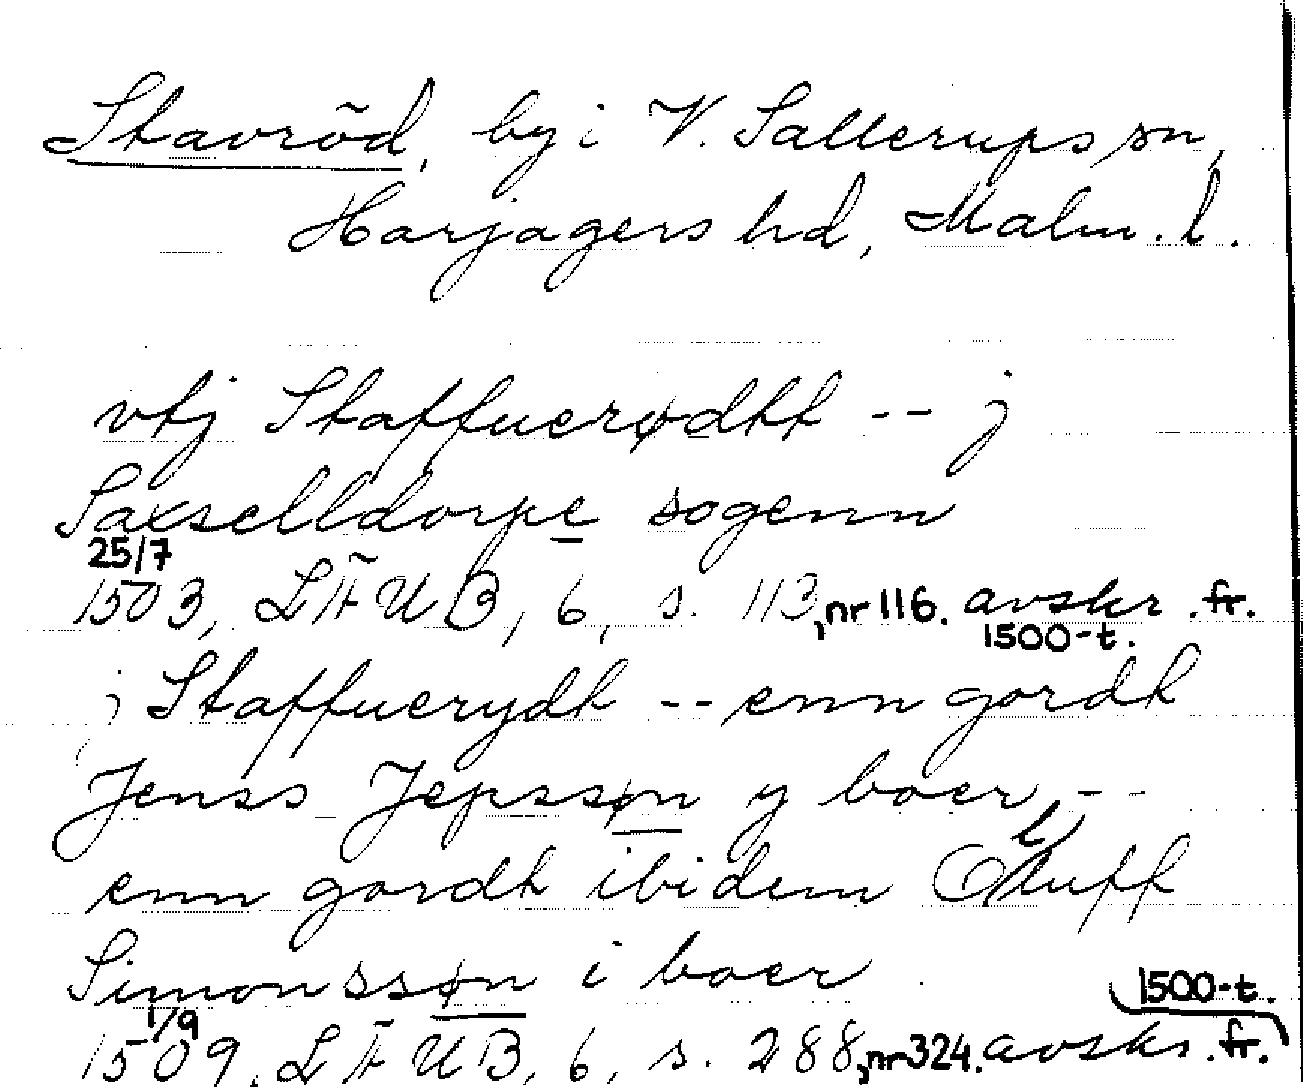 Stavröd, by i V. Sallerups sn,
Harjagers hd, Malm. l.
vtj Staffuerødtt -- j
Saxselldorpe sogenn
25/7
1503, LÄUB, 6, s. 113, nr 116. avskr. fr.
1500-t.
j Staffuerydt -- enn gordt
Jenss Jepssøn y boer --
enn gordt ibidem Oluff
Simonssøn i boer
1500-t.
1/9
1509, LÄUB, 6, s. 288, nr 324. avskr. fr.